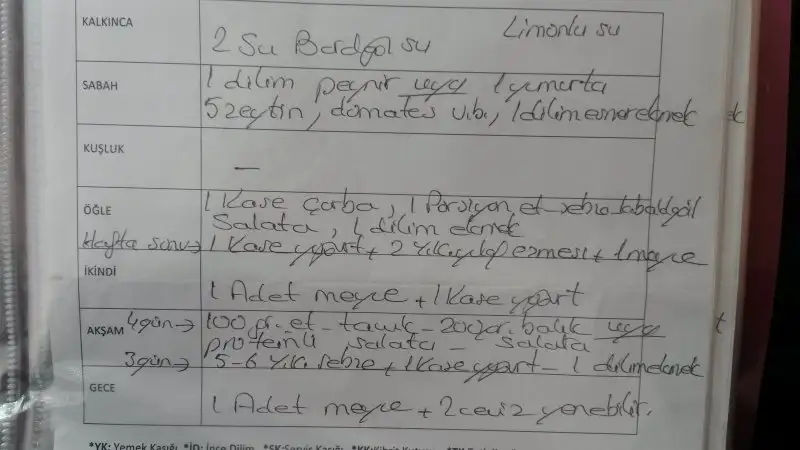 KALKINCA
Limonlu su
2 Su Bardağı su
SABAH
1 dilim peynir veya 1 yumurta
5 zeytin, domates v.b., 1 dilim esmer ekmek
KUŞLUK
—
ÖĞLE
1 Kase çorba, 1 Porsiyon et - sebze - bakliyat
Salata, 1 dilim ekmek
Hafta sonu → 1 Kase yoğurt + 2 Y.K. ezmesi + 1 meyve
İKİNDİ
1 Adet meyve + 1 Kase yoğurt
AKŞAM 4 gün → 100 gr. et - tavuk - 200 gr. balık veya
proteinli salata - salata
3 gün → 5-6 Y.K. sebze + 1 Kase yoğurt - 1 dilim ekmek
GECE
1 Adet meyve + 2 ceviz yenebilir.
*YK: Yemek Kaşığı *İD: İnce Dilim *SK: Servis Kaşığı